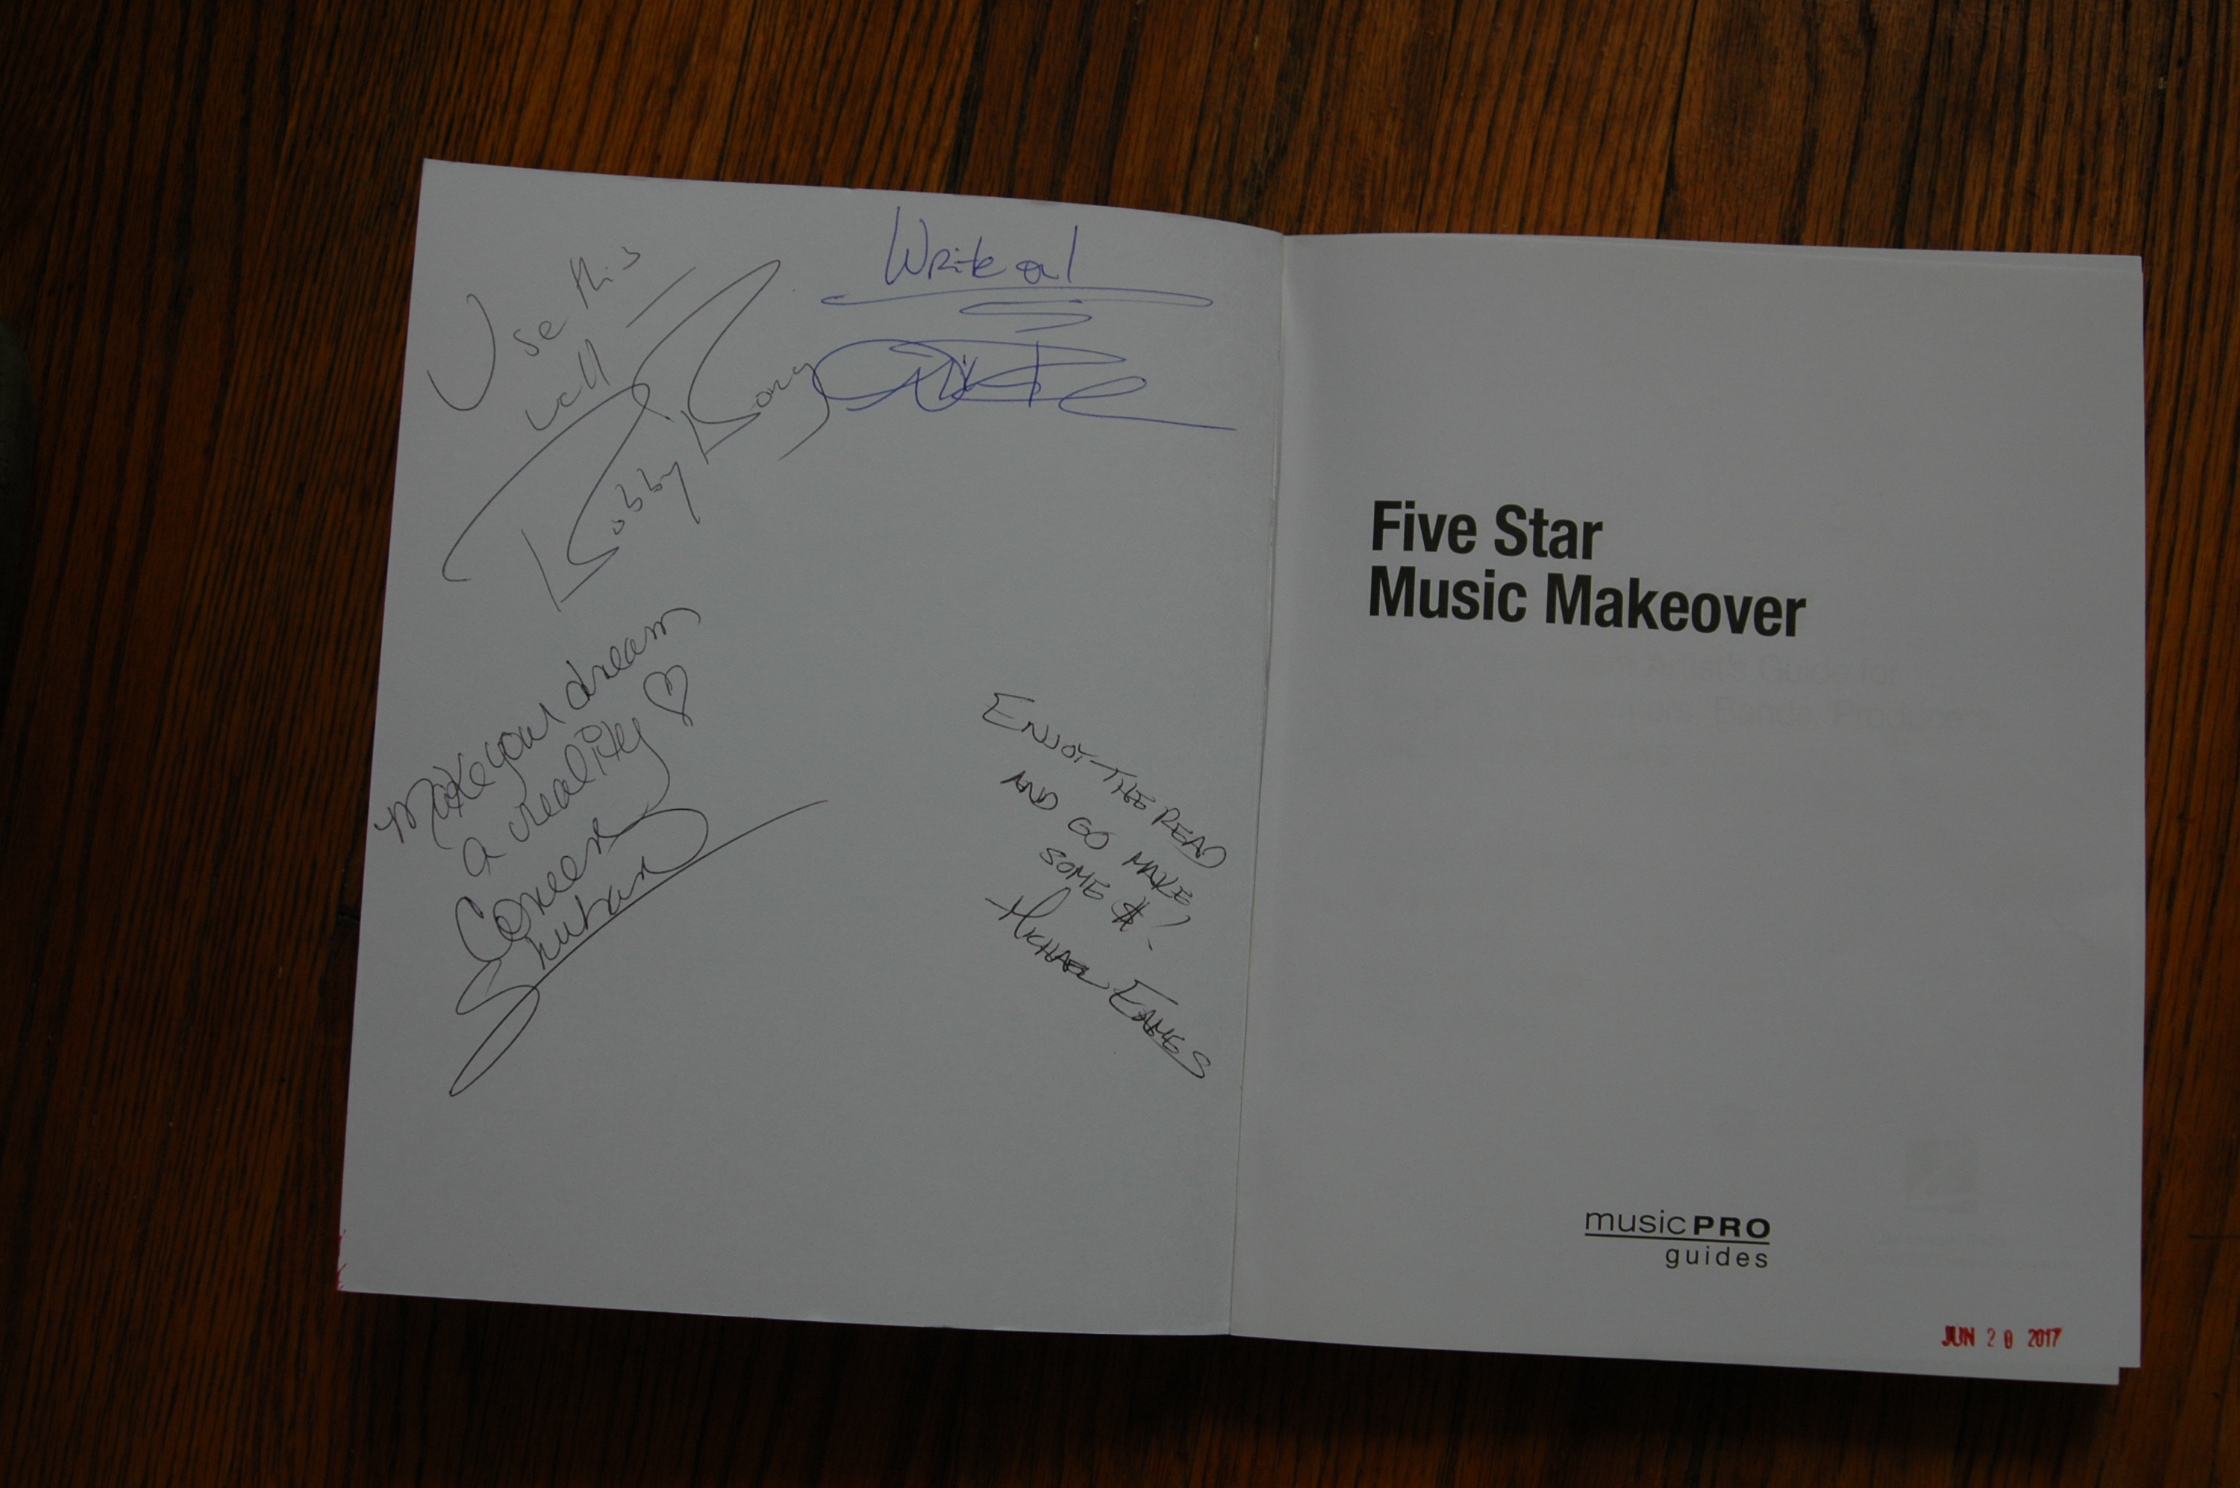 Use this
well
Robby Long
Write on!
Make your dream
a reality ♡
Coreen
Sheehan
ENJOY THE READ
AND GO MAKE
SOME $!
-MICHAEL EAMES
Five Star
Music Makeover
musicPRO
guides
JUN 20 2017